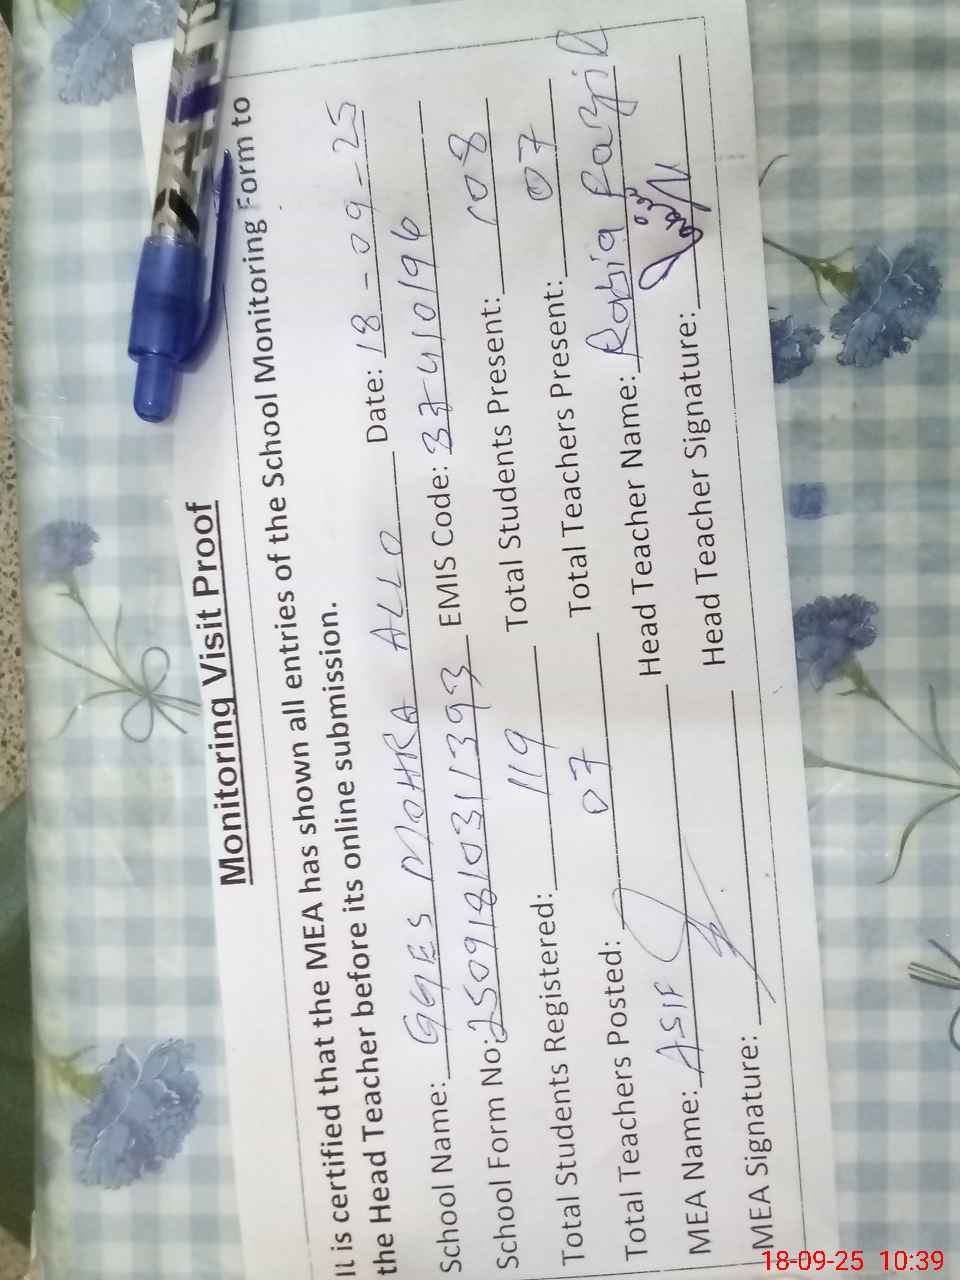 Monitoring Visit Proof
It is certified that the MEA has shown all entries of the School Monitoring Form to
the Head Teacher before its online submission.
School Name: GGES MOHRA ALLO Date: 18-09-25
School Form No: 2509181031393 EMIS Code: 37410196
Total Students Registered: 119 Total Students Present: 108
Total Teachers Posted: 07 Total Teachers Present: 07
MEA Name: ASIF Head Teacher Name: Rabia
MEA Signature: Head Teacher Signature:
18-09-25 10:39